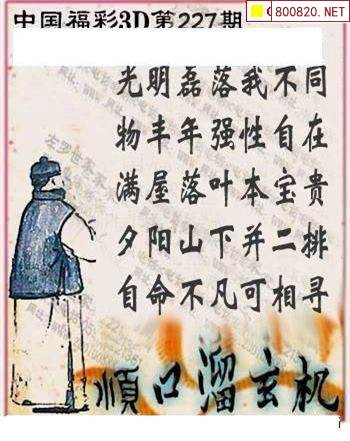 中国福彩3D第227期
800820.NET
光明磊落我不同
物丰年强性自在
满屋落叶本宝贵
夕阳山下并二排
自命不凡可相寻
順口溜玄机